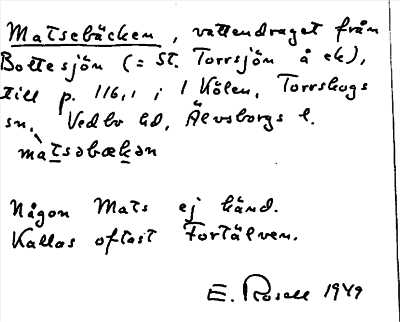 Matsebäcken, vattendraget från
Bottesjön (= St. Torrsjön å ek),
till p. 116,1 i 1 Kölen, Torrskogs
sn, Vedbo hd, Älvsborgs l.
matsəbækən
Någon Mats ej känd.
Kallas oftast Fortälven.
E. Rosell 1949